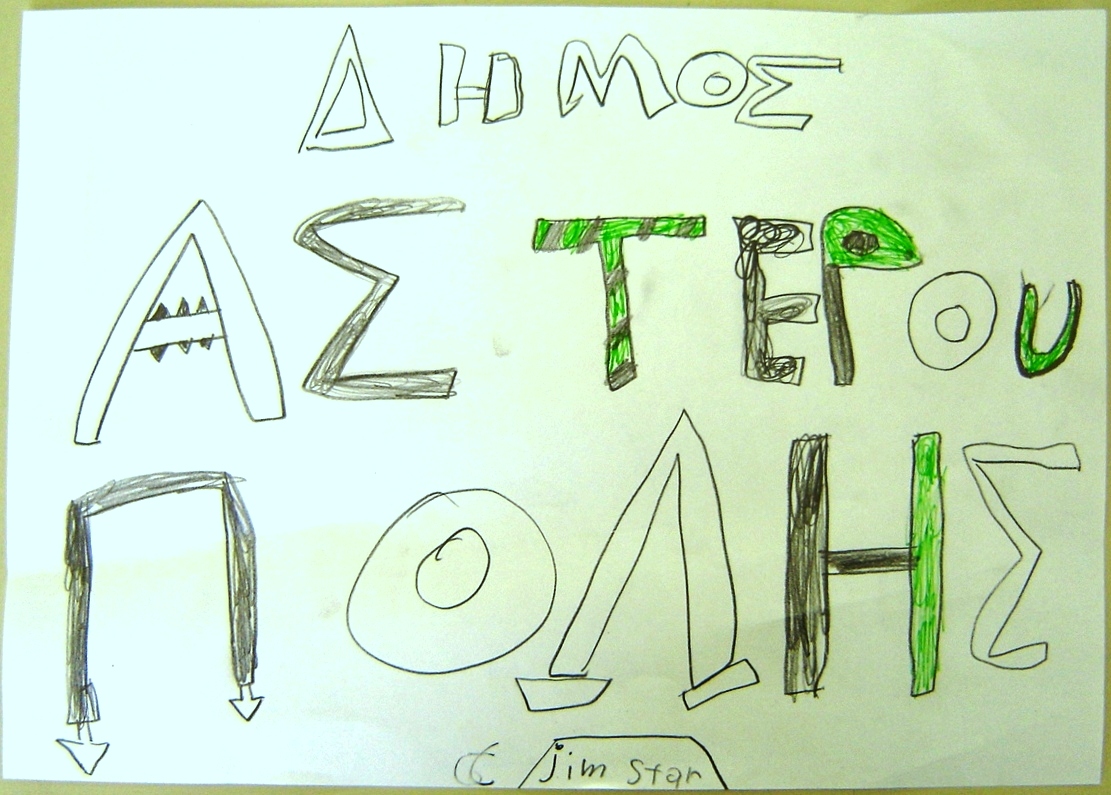 ΔΗΜΟΣ
ΑΣΤΕΡΟU
ΠΟΛΗΣ
jim star